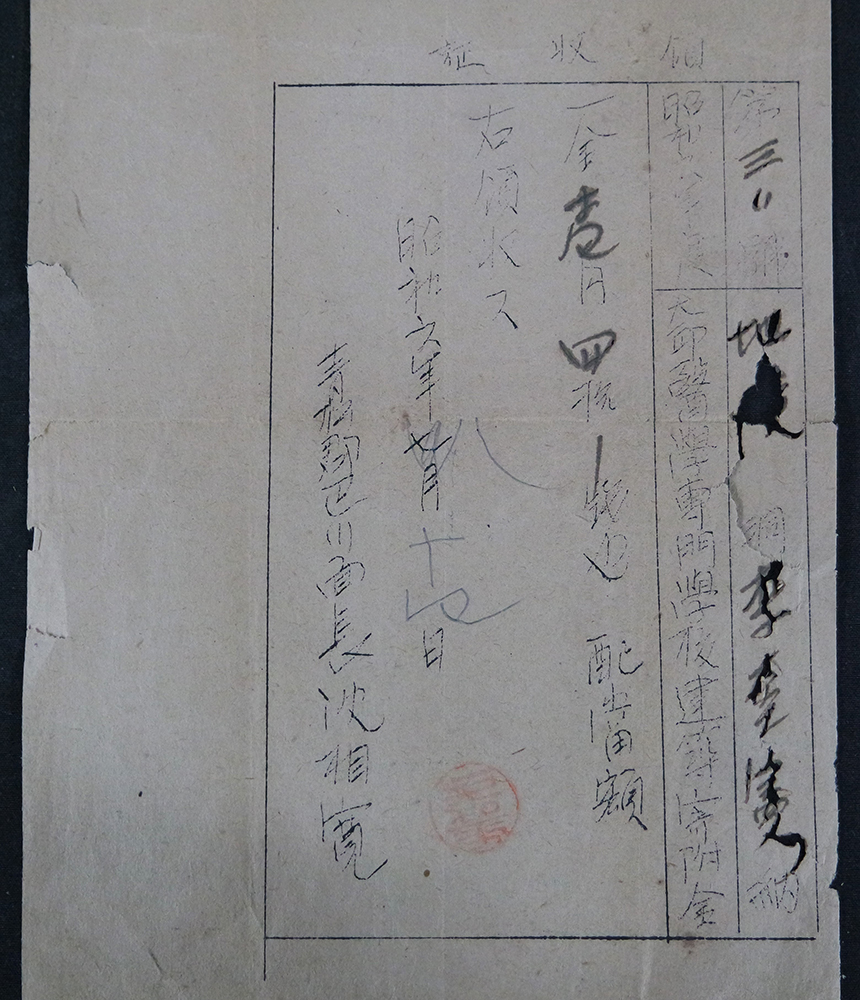 領收証
第三〃號
地 洞李 寬 納
昭和六年度
大邱醫學專門學校建築寄附金
一金壹円四拾 錢也 配當額
右領收ス
昭和六年 月十 日
青松郡巴川面長沈相寬